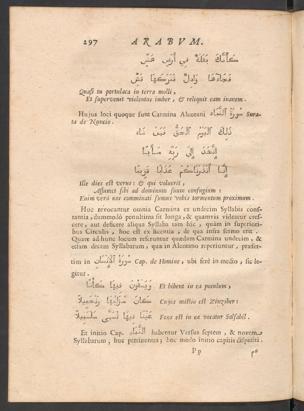 297 ARABUM.
كأنك بقلة في أرض هش
فجادها وابل فتركها قش
Quasi tu portulaca in terra molli,
Et supervenit violentus imber, & reliquit eam inanem.
Hujus loci quoque sunt Carmina Alcorani سورة النباء Sura-
ta de Nuncio.
ذلك اليوم الحق فمن شاء
اتخذ إلى ربه مآبا
إنا أنذرناكم عذابا قريبا
Ille dies est verus: & qui voluerit,
Assumet sibi ad dominum suum confugium:
Enim verò nos comminati sumus vobis tormentum proximum.
Huc revocantur omnia Carmina ex undecim Syllabis con-
stantia, dummodo penultima sit longa, & quamvis videatur cres-
cere, aut deficere aliqua Syllaba tam hîc, quàm in superiori-
bus Circulis, hoc est ex licentia, de qua infra sermo erit.
Quare ad hunc locum referuntur quædam Carmina undecim, &
etiam decem Syllabarum, quæ in Alcorano reperiuntur, præser-
tim in سورة الانسان Cap. de Homine, ubi ferè in medio, sic le-
gitur.
ويسقون فيها كأسا Et bibent in ea poculum,
كان مزاجها زنجبيلا Cujus mistio est Zinziber:
عينا فيها تسمى سلسبيلا Fons est in ea vocatur Salsabil.
Et initio Cap. النباء habentur Versus septem, & novem
Syllabarum, huc pertinentes; hoc modo initio capitis dispositi.
Pp